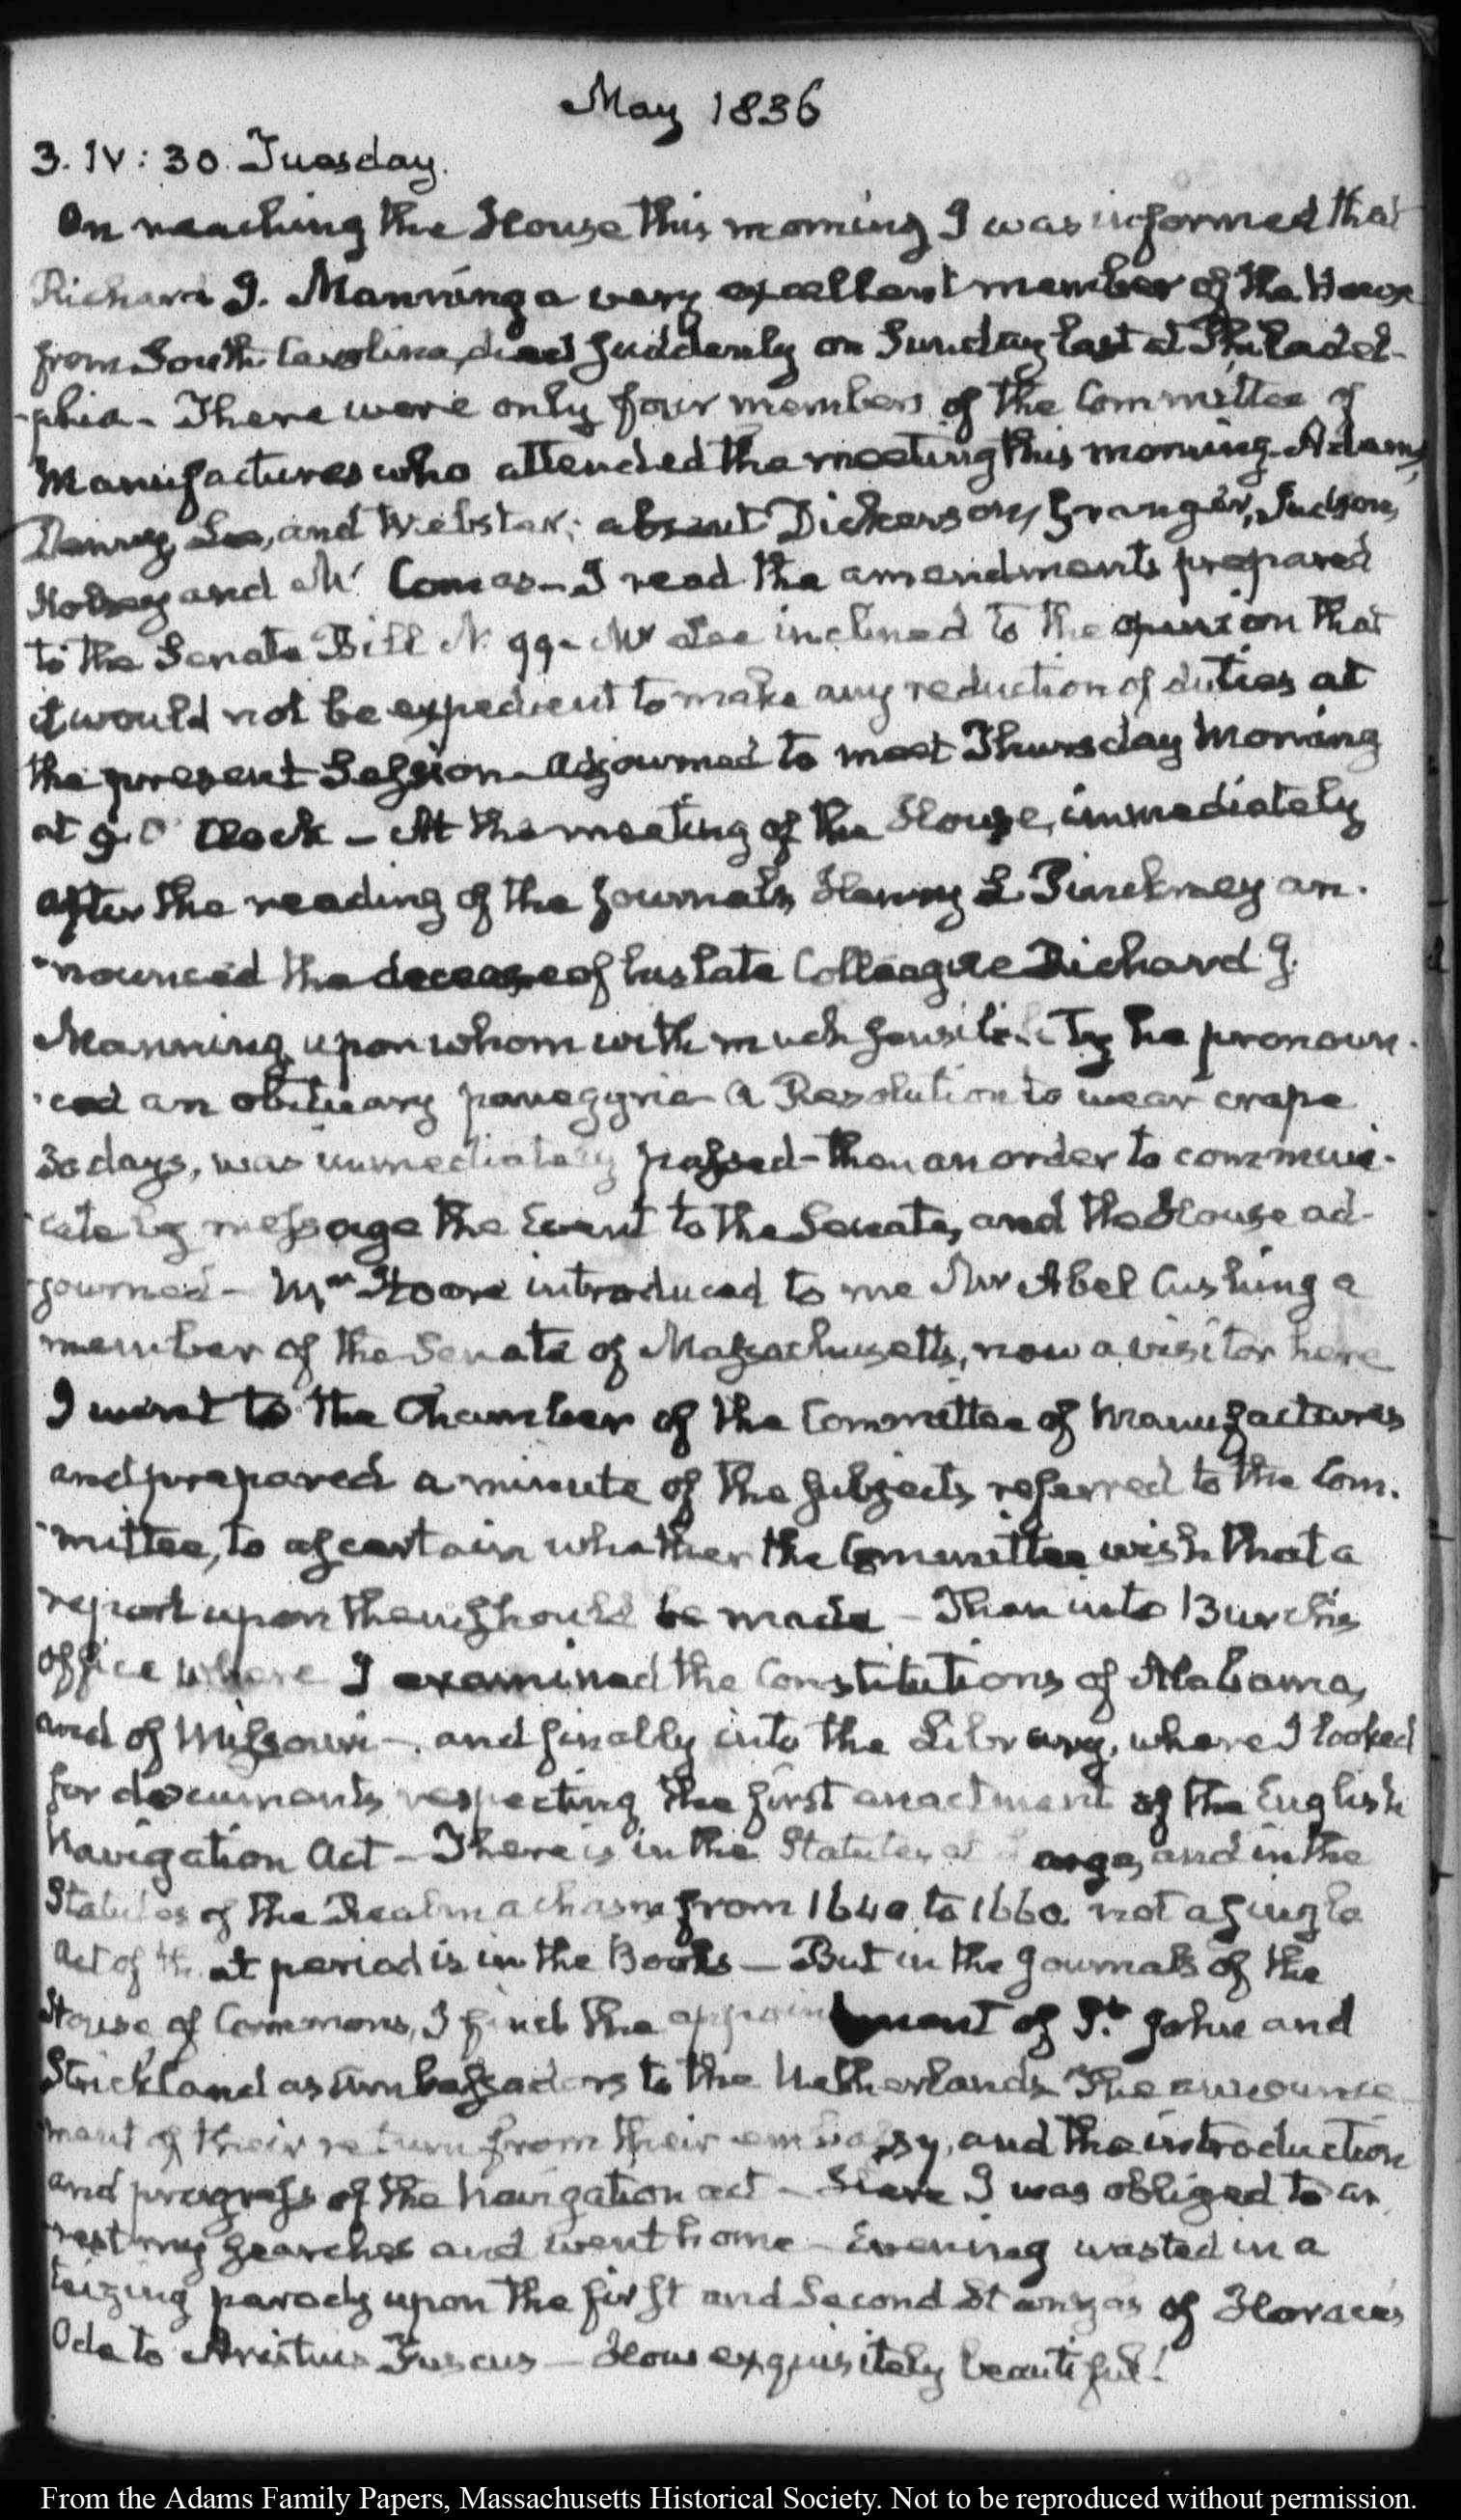 May 1836
3. IV: 30. Tuesday.
On reaching the House this morning I was informed that
Richard I. Manning a very excellent member of the House
from South Carolina, died suddenly on Sunday last at Philadel-
-phia - There were only four members of the Committee of
Manufactures who attended the meeting this morning. Adams,
Denny, Lee, and Webster; absent Dickerson, Granger, Judson,
Halsey and Mc. Comas - I read the amendments prepared
to the Senate Bill N. 99 - Mr Lee inclined to the opinion that
it would not be expedient to make any reduction of duties at
the present Session - Adjourned to meet Thursday Morning
at 9. O'Clock - At the meeting of the House, immediately
after the reading of the journals, Henry L Pinckney an-
-nounced the decease of his late Colleague Richard I.
Manning, upon whom with much sensibility he pronoun-
-ced an obituary panegyric - A Resolution to wear crape
30 days, was immediately passed - then an order to communi-
-cate by message the Event to the Senate, and the House ad-
-journed - Mr Hoar introduced to me Mr Abel Cushing a
member of the Senate of Massachusetts, now a visitor here
I went to the Chamber of the Committee of Manufactures
and prepared a minute of the subjects referred to the Com-
-mittee, to ascertain whether the Committee wish that a
report upon them should be made - Then into Burch's
office where I examined the Constitutions of Alabama,
and of Missouri - and finally into the Library, where I looked
for documents respecting the first enactment of the English
Navigation Act - There is in the Statutes at Large, and in the
Statutes of the Realm a chasm from 1640 to 1660. not a single
Act of that period is in the Books - But in the Journals of the
House of Commons, I find the appointment of St. John and
Strickland as Ambassadors to the Netherlands The announce
ment of their return from their embassy, and the introduction
and progress of the Navigation act - Here I was obliged to ar
-rest my searches and went home - Evening wasted in a
teizing parody upon the first and Second Stanzas of Horace's
Ode to Aristius Fuscus - How exquisitely beautiful!
From the Adams Family Papers, Massachusetts Historical Society. Not to be reproduced without permission.